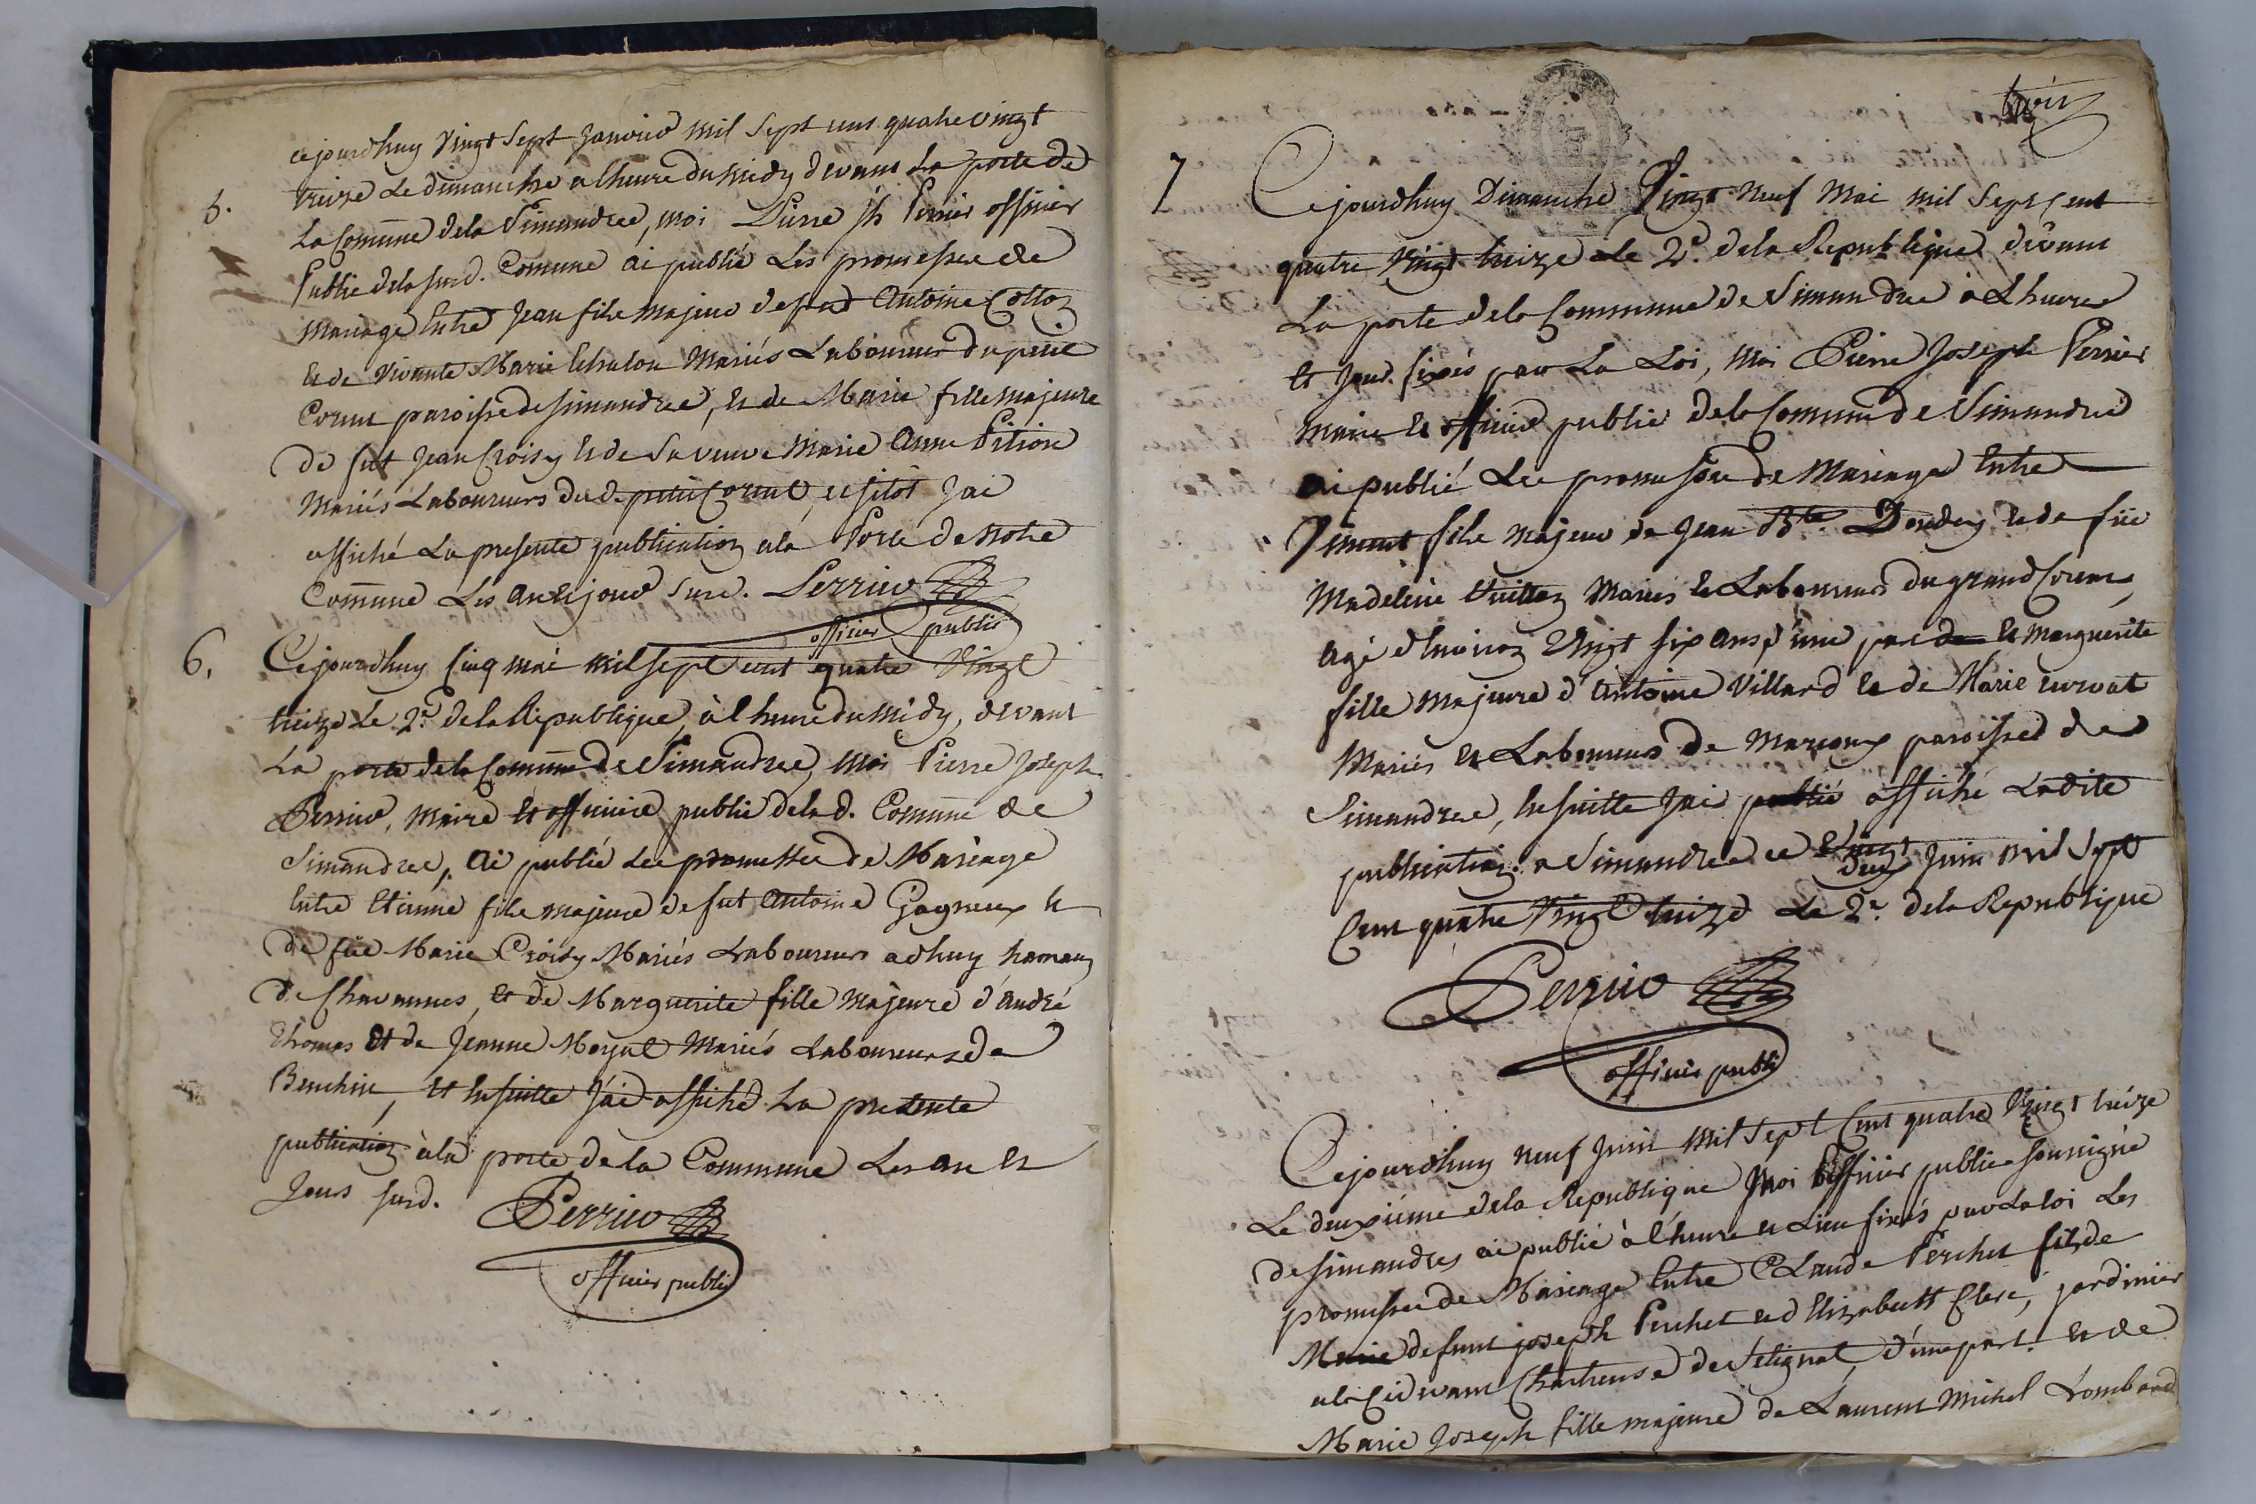 5.
cejourdhuy vingt sept janvier mil sept cens quatre vingt
treize Le dimanche a lheure du midy devant La porte de
La Comune dela Simandre, moi Pierre jh Perrier officier
Public dela surd. Comune ai publié Les promesses de
Mariage Entre Jean fils majeur de feu Antoine Cottoz
Et de vivante Marie Mariés Laboureurs du petit
Corent paroisse de simandre, Et de Marie fille majeure
de fut Jean Croisy Et de sa veuve Marie Anne Pition
Mariés Laboureurs dud. petit Corent, et sitôt Jai
affiché La presente publication ala Porte de Notre
Commune Les an et jour surd. Perrier
officier public
6.
Cejourdhuy cinq mai mil sept cent quatre vingt
treize Le 2e. de la Republique, à l heure du Midy, devant
La porte de la Comune de Simandre, Moi Pierre Joseph
Perrier, Maire Et officier public de lad. Comune de
Simandre, ai publié Les promesses de Mariage
Entre Etienne fils majeur de fut Antoine Gagneux Et
de füe Marie Croisy Mariés Laboureurs adhuy hameau
de Chavannes, et de Marguerite fille Majeure d'andré
thomas Et de Jeanne Moyat Mariés Laboureurs de
et Ensuitte J'ai affiché La presente
publication à la porte de la Commune Les an Et
Jours surd.
Perrier
officier public
trois
7
Cejourdhuy Dimanche Vingt Neuf Mai mil Sept Cent
quatre Vingt treize Le 2e. de la Republique devant
La porte de la Commune de Simandre à L heure
Et jour fixés par La Loi, Moi Pierre Joseph Perrier
Maire Et officier public de la Comune de Simandre
ai publié Les promesses de Mariage Entre
Vincent fils majeur de Jean Bte. Et de füe
Madeleine Vuitton Mariés Et Laboureurs du grand Corent,
agé d'Environ Vingt six ans d'une part Et Marguerite
fille Majeure d'Antoine Villard Et de Marie curvat
Mariés Et Laboureurs de Marcoux paroisse de
Simandre, Ensuitte Jai publié affiché Ladite
publication. a Simandre ce Vingt
deux Juin Mil Sept
Cent quatre Vingt treize Le 2e. de la Republique
Perrier
officier public
Cejourdhuy neuf Juin Mil Sept Cent quatre Vingt treize
Le deuxiéme de la Republique Moi L'officier public soussigné
de Simandres ai publié à l'heure et Lieu fixés par La loi Les
promesses de Mariage Entre Claude Perchet fils de
Marie defunt joseph Perchet Et d'Elizabeth Clerc, jardinier
ala Cidevant Chartreuse de Sélignat, d'une part. Et de
Marie Joseph fille majeure de Laurent Michel Lombard